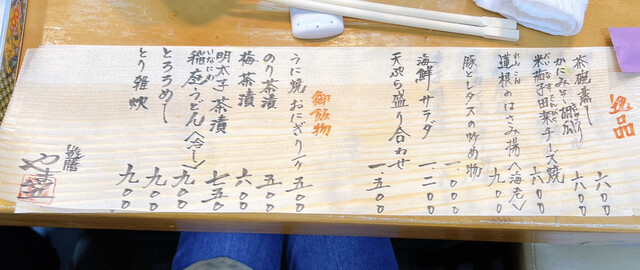 逸品
茶碗蒸し 六〇〇
かにみそ胡瓜 六〇〇
米茄子田楽チーズ焼 六〇〇
べいなす
蓮根のはさみ揚〈海老〉 九〇〇
れんこん
豚とレタスの炒め物 一、〇〇〇
海鮮サラダ 一、二〇〇
天ぷら盛り合わせ 一、五〇〇
御飯物
うに焼おにぎり一ヶ 五〇〇
のり茶漬 五〇〇
梅茶漬 六〇〇
明太子茶漬 七五〇
稲庭うどん〈冷し〉 九〇〇
いなにわ
とろろめし 九〇〇
とり雑炊 九〇〇